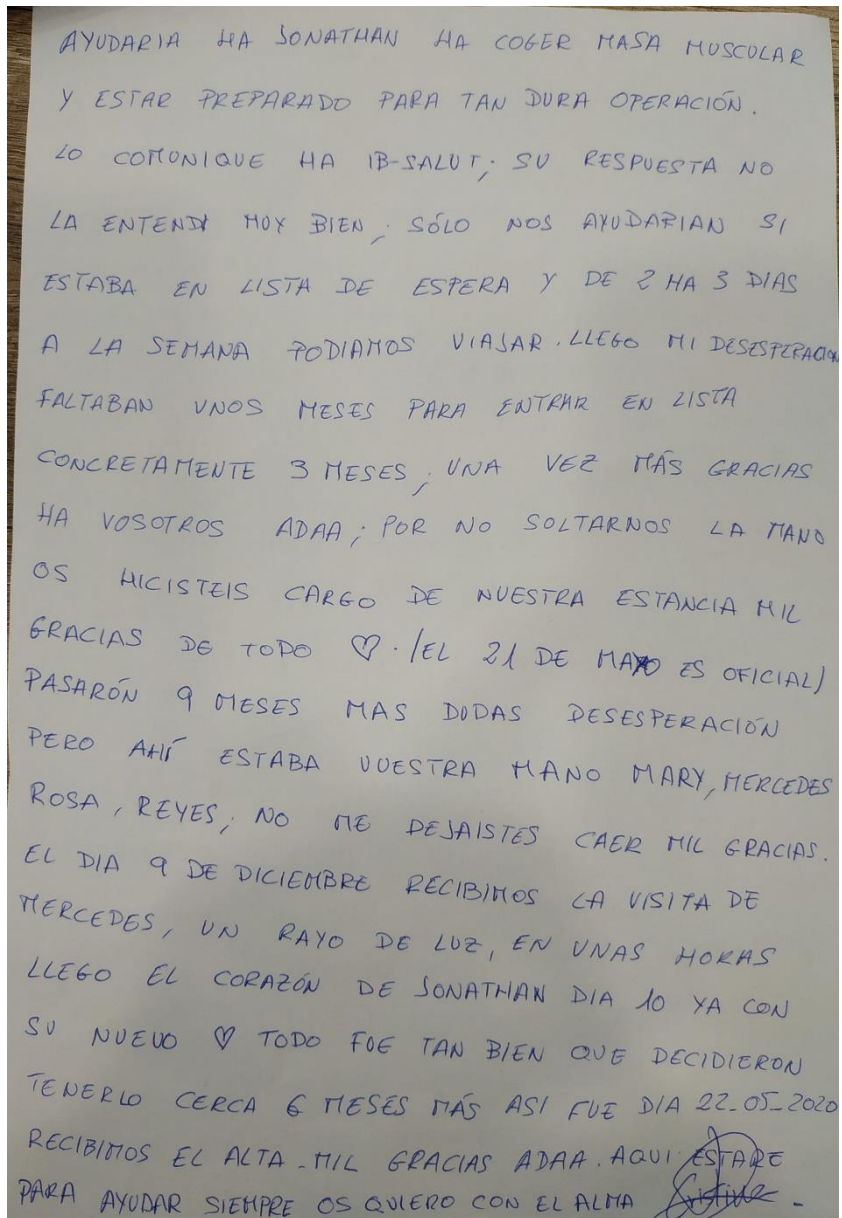 AYUDARIA HA JONATHAN HA COGER MASA MUSCULAR
Y ESTAR PREPARADO PARA TAN DURA OPERACIÓN.
LO COMUNIQUE HA IB-SALUT; SU RESPUESTA NO
LA ENTENDI MUY BIEN; SÓLO NOS AYUDARIAN SI
ESTABA EN LISTA DE ESPERA Y DE 2 HA 3 DIAS
A LA SEMANA PODIAMOS VIAJAR. LLEGO MI DESESPERACION
FALTABAN UNOS MESES PARA ENTRAR EN LISTA
CONCRETAMENTE 3 MESES; UNA VEZ MÁS GRACIAS
HA VOSOTROS ADAA; POR NO SOLTARNOS LA MANO
OS HICISTEIS CARGO DE NUESTRA ESTANCIA MIL
GRACIAS DE TODO ♡. (EL 21 DE MAYO ES OFICIAL)
PASARÓN 9 MESES MAS DUDAS DESESPERACIÓN
PERO AHÍ ESTABA VUESTRA MANO MARY, MERCEDES
ROSA, REYES; NO ME DEJAISTES CAER MIL GRACIAS.
EL DIA 9 DE DICIEMBRE RECIBIMOS LA VISITA DE
MERCEDES, UN RAYO DE LUZ, EN UNAS HORAS
LLEGO EL CORAZÓN DE JONATHAN DIA 10 YA CON
SU NUEVO ♡ TODO FUE TAN BIEN QUE DECIDIERON
TENERLO CERCA 6 MESES MÁS ASI FUE DIA 22-05-2020
RECIBIMOS EL ALTA - MIL GRACIAS ADAA. AQUI ESTARE
PARA AYUDAR SIEMPRE OS QUIERO CON EL ALMA Cristina -